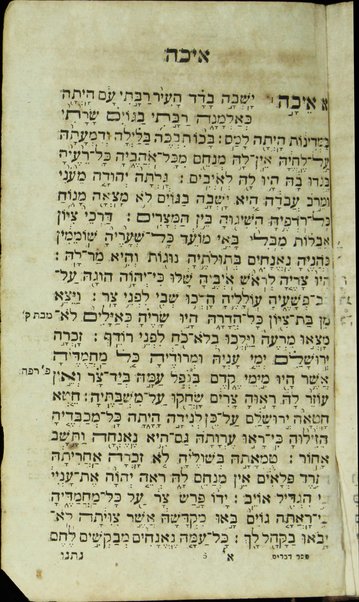 איכה
א אֵיכָה יָשְׁבָה בָדָד הָעִיר רַבָּתִי עָם הָיְתָה
כְּאַלְמָנָה רַבָּתִי בַגּוֹיִם שָׂרָתִי
בַּמְּדִינוֹת הָיְתָה לָמַס׃ בָּכוֹ תִבְכֶּה בַּלַּיְלָה וְדִמְעָתָהּ
עַל־לֶחֱיָהּ אֵין־לָהּ מְנַחֵם מִכָּל־אֹהֲבֶיהָ כָּל־רֵעֶיהָ
בָּגְדוּ בָהּ הָיוּ לָהּ לְאֹיְבִים׃ גָּלְתָה יְהוּדָה מֵעֹנִי
וּמֵרֹב עֲבֹדָה הִיא יָשְׁבָה בַגּוֹיִם לֹא מָצְאָה מָנוֹחַ
כָּל־רֹדְפֶיהָ הִשִּׂיגוּהָ בֵּין הַמְּצָרִים׃ דַּרְכֵי צִיּוֹן
אֲבֵלוֹת מִבְּלִי בָּאֵי מוֹעֵד כָּל־שְׁעָרֶיהָ שׁוֹמֵמִין
כֹּהֲנֶיהָ נֶאֱנָחִים בְּתוּלֹתֶיהָ נּוּגוֹת וְהִיא מַר־לָהּ׃
הָיוּ צָרֶיהָ לְרֹאשׁ אֹיְבֶיהָ שָׁלוּ כִּי־יְהוָֹה הוֹגָהּ עַל־
רֹב־פְּשָׁעֶיהָ עוֹלָלֶיהָ הָלְכוּ שְׁבִי לִפְנֵי צָר׃ וַיֵּצֵא
מִן בַּת־צִיּוֹן כָּל־הֲדָרָהּ הָיוּ שָׂרֶיהָ כְּאַיָּלִים לֹא־
מבת ק׳
מָצְאוּ מִרְעֶה וַיֵּלְכוּ בְלֹא־כֹחַ לִפְנֵי רוֹדֵף׃ זָכְרָה
יְרוּשָׁלִַם יְמֵי עָנְיָהּ וּמְרוּדֶיהָ כֹּל מַחֲמֻדֶיהָ
אֲשֶׁר הָיוּ מִימֵי קֶדֶם בִּנְפֹל עַמָּהּ בְּיַד־צָר וְאֵין
פ׳ רפה
עוֹזֵר לָהּ רָאוּהָ צָרִים שָׂחֲקוּ עַל־מִשְׁבַּתֶּיהָ׃ חֵטְא
חָטְאָה יְרוּשָׁלִַם עַל־כֵּן לְנִידָה הָיָתָה כָּל־מְכַבְּדֶיהָ
הִזִּילוּהָ כִּי־רָאוּ עֶרְוָתָהּ גַּם־הִיא נֶאֶנְחָה וַתָּשָׁב
אָחוֹר׃ טֻמְאָתָהּ בְּשׁוּלֶיהָ לֹא זָכְרָה אַחֲרִיתָהּ
וַתֵּרֶד פְּלָאִים אֵין מְנַחֵם לָהּ רְאֵה יְהוָֹה אֶת־עָנְיִי
כִּי הִגְדִּיל אוֹיֵב׃ יָדוֹ פָּרַשׂ צָר עַל כָּל־מַחֲמַדֶּיהָ
כִּי־רָאֲתָה גוֹיִם בָּאוּ מִקְדָּשָׁהּ אֲשֶׁר צִוִּיתָה לֹא־
יָבֹאוּ בַקָּהָל לָךְ׃ כָּל־עַמָּהּ נֶאֱנָחִים מְבַקְשִׁים לֶחֶם
ספר דברים א׳ 5 נתנו